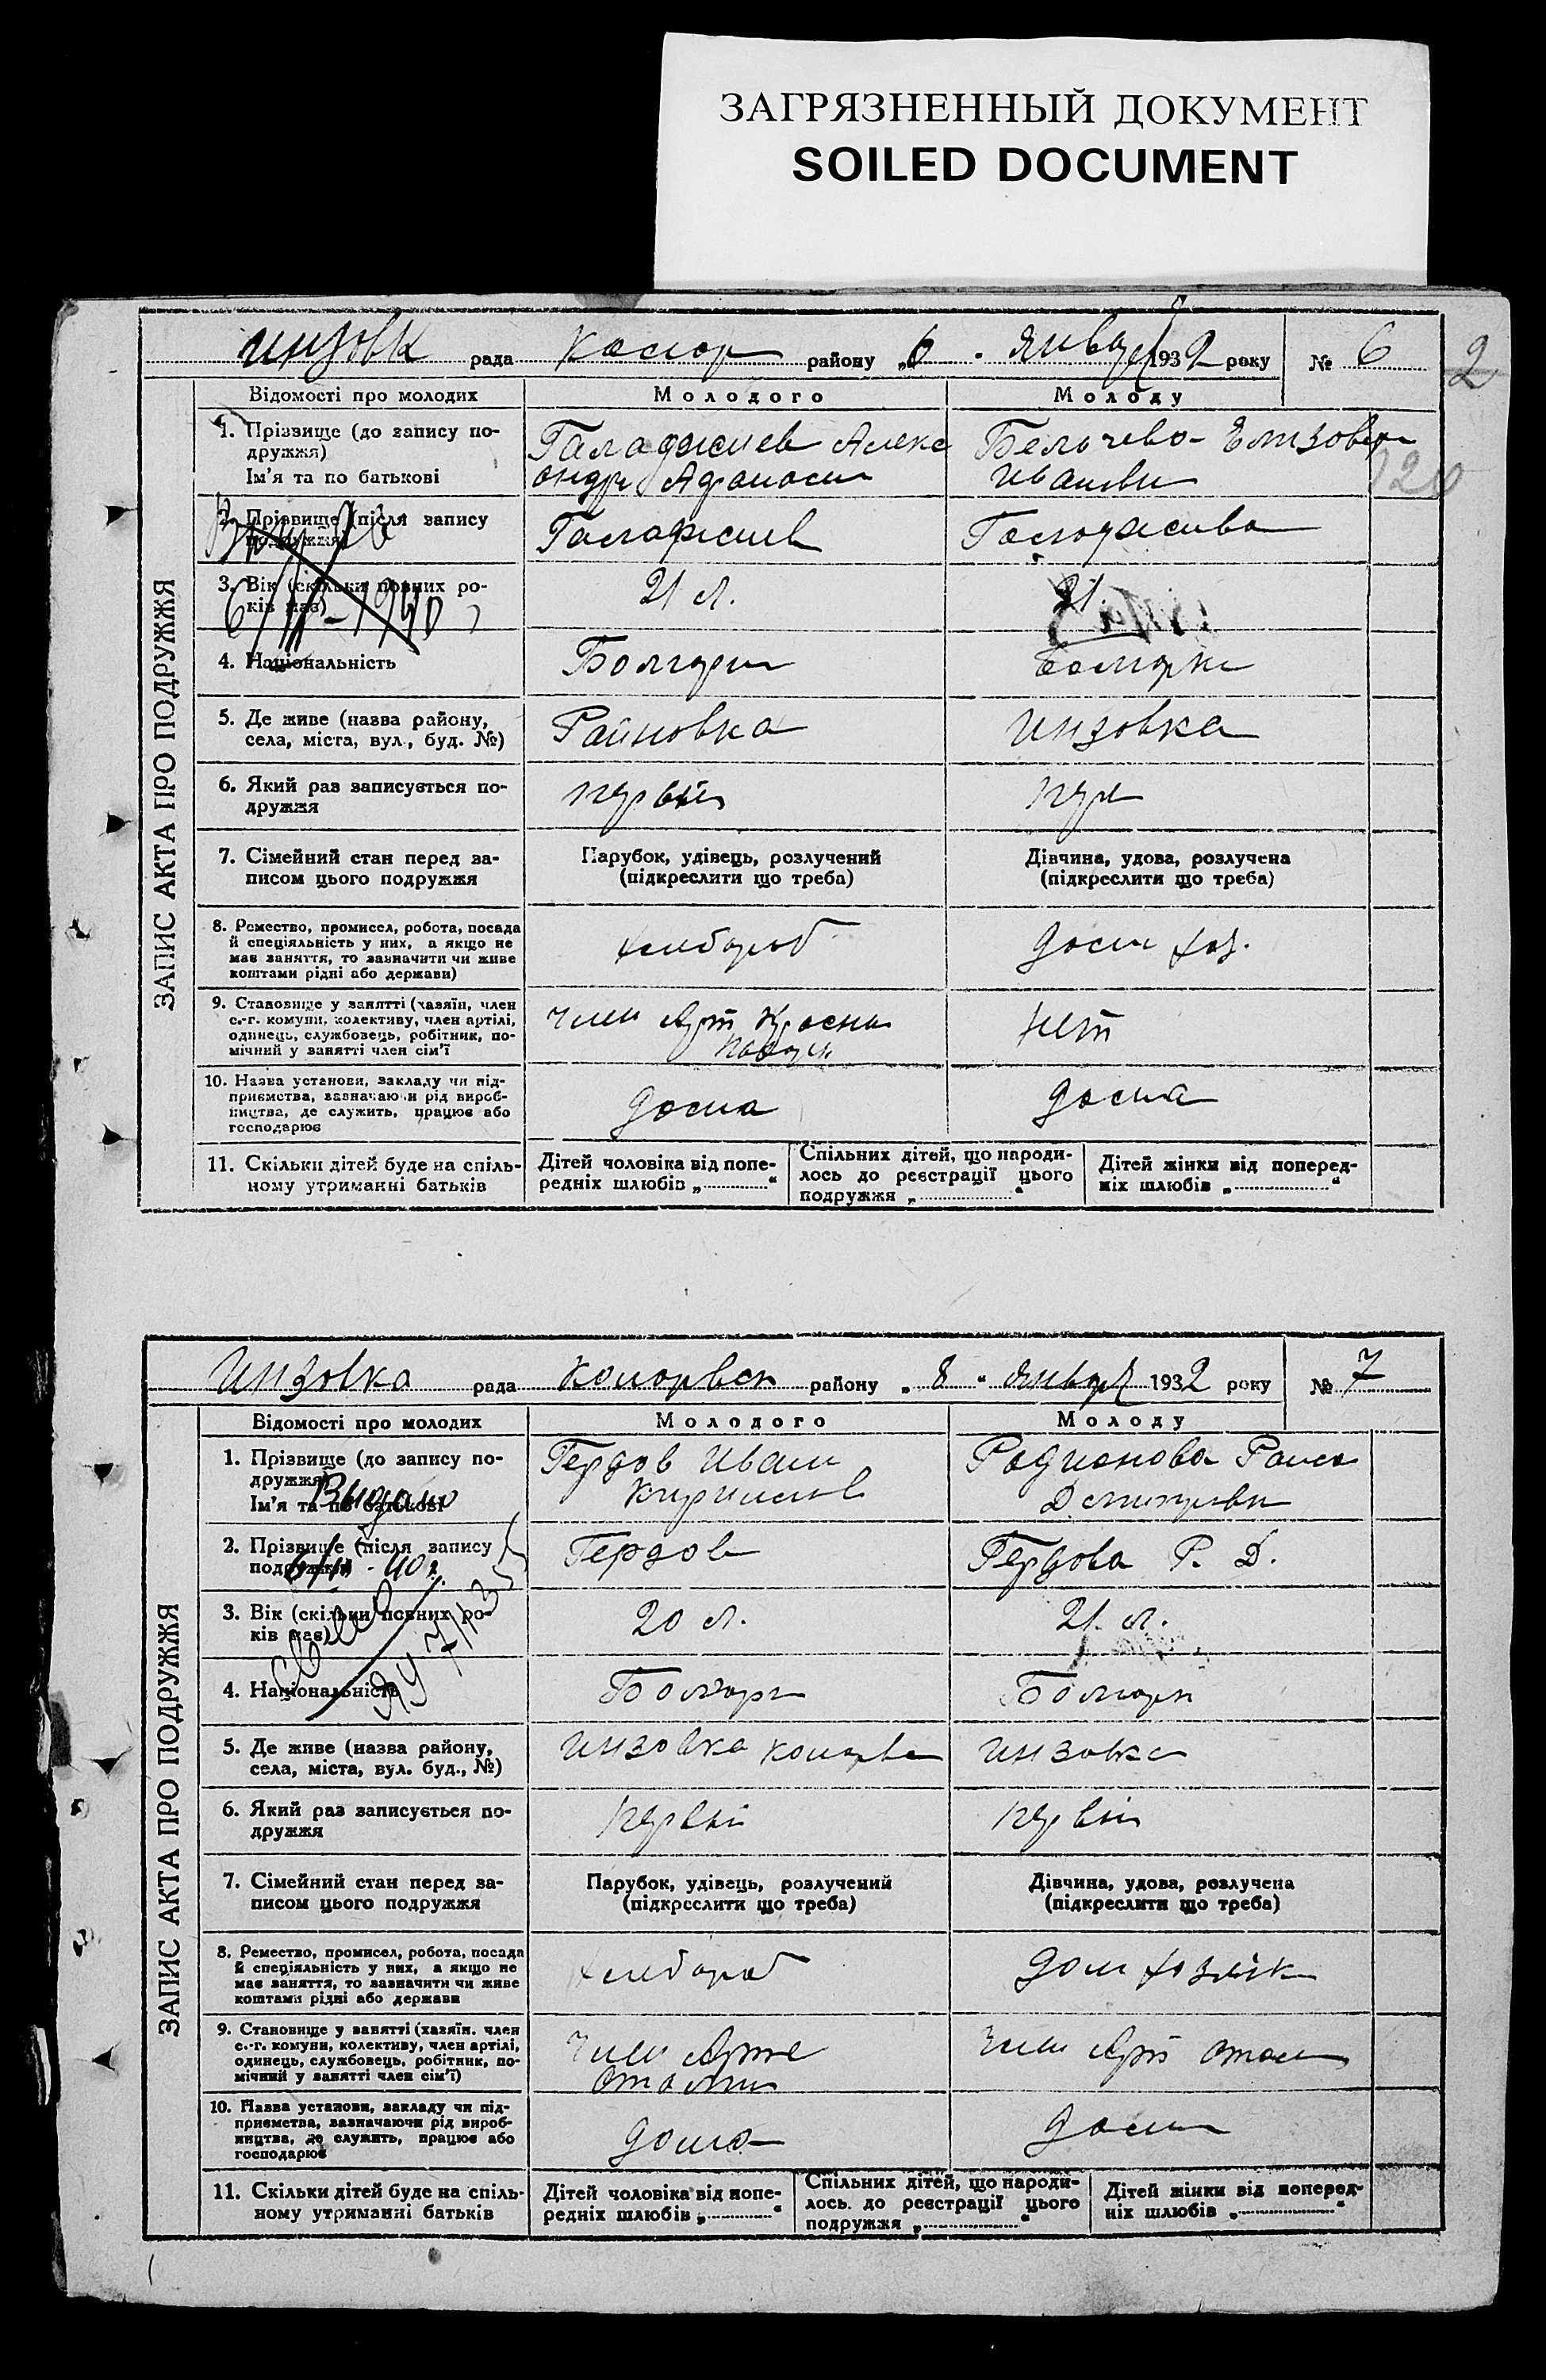 ЗАГРЯЗНЕННЫЙ ДОКУМЕНТ
SOILED DOCUMENT
Инзовк рада район у „6 " января 1932 року № 6
2
ЗАПИС АКТА ПРО ПОДРУЖЖЯ
Відомості про молодих
Молодого
Молоду
1. Прізвище (до запису по-
дружжя)
Ім'я та по батькові
Галаджиев Алекс
андр Афанаси
Бельчева Елизовет
Ивановн
20
2. Прізвище (після запису
подружжя)
Галаджиев
Галаджиева
3. Вік (скільки повних ро-
ків має)
6/III-1940
21 л.
21.
4. Національність
Болгарин
Болгарка
5. Де живе (назва району,
села, міста, вул., буд. №)
Райновка
Инзовка
6. Який раз записується по-
дружжя
первый
7. Сімейний стан перед за-
писом цього подружжя
Парубок, удівець, розлучений
(підкреслити що треба)
Дівчина, удова, розлучена
(підкреслити що треба)
8. Ремество, промисел, робота, посада
й спеціяльність у них, а якщо не
має заняття, то зазначити чи живе
коштами рідні або держави)
хлебороб
дом хоз.
9. Становище у занятті (хазяїн, член
с.-г. комуни, колективу, член артілі,
одинець, службовець, робітник, по-
мічний у занятті член сім'ї
член Арт Красн
Пахарь
нет
10. Назва установи, закладу чи під-
приємства, зазначаючи рід вироб-
ництва, де служить, працює або
господарює
дома
дома
11. Скільки дітей буде на спіль-
ному утриманні батьків
Дітей чоловіка від попе-
редніх шлюбів „ "
Спільних дітей, що народи-
лось до реєстрації цього
подружжя „ "
Дітей жінки від поперед-
ніх шлюбів „ "
Инзовка рада Коларвск району „ 8 " января 1932 року № 7
ЗАПИС АКТА ПРО ПОДРУЖЖЯ
Відомості про молодих
Молодого
Молоду
1. Прізвище (до запису по-
дружжя)
Ім'я та по батькові
Выдано
Гердов Иван
Кирилов
Родионова Раиса
Дмитривн
2. Прізвище (після запису
подружжя)
6/III-40г.
Гердов
Гердова Р. Д.
3. Вік (скільки повних ро-
ків має)
20 л.
21. л.
4. Національність
Болгарн
Болгарк
5. Де живе (назва району,
села, міста, вул. буд., №)
Инзовка Коларвс
Инзовка
6. Який раз записується по-
дружжя
первый
первый
7. Сімейний стан перед за-
писом цього подружжя
Парубок, удівець, розлучений
(підкреслити що треба)
Дівчина, удова, розлучена
(підкреслити що треба)
8. Ремество, промисел, робота, посада
й спеціяльність у них, а якщо не
має заняття, то зазначити чи живе
коштами рідні або держави
хлебороб
дом хозяйк
9. Становище у занятті (хазяїн. член
с.-г. комуни, колективу, член артілі,
одинець, службовець, робітник, по-
мічний у занятті член сім'ї)
член Арте
член Арт
10. Назва установи, закладу чи під-
приємства, зазначаючи рід вироб-
ництва, де служить, працює або
господарює
дома
дома
11. Скільки дітей буде на спіль-
ному утриманні батьків
Дітей чоловіка від попе-
редніх шлюбів „ "
Спільних дітей, що народи-
лось до реєстрації цього
подружжя „ "
Дітей жінки від поперед-
ніх шлюбів „ "